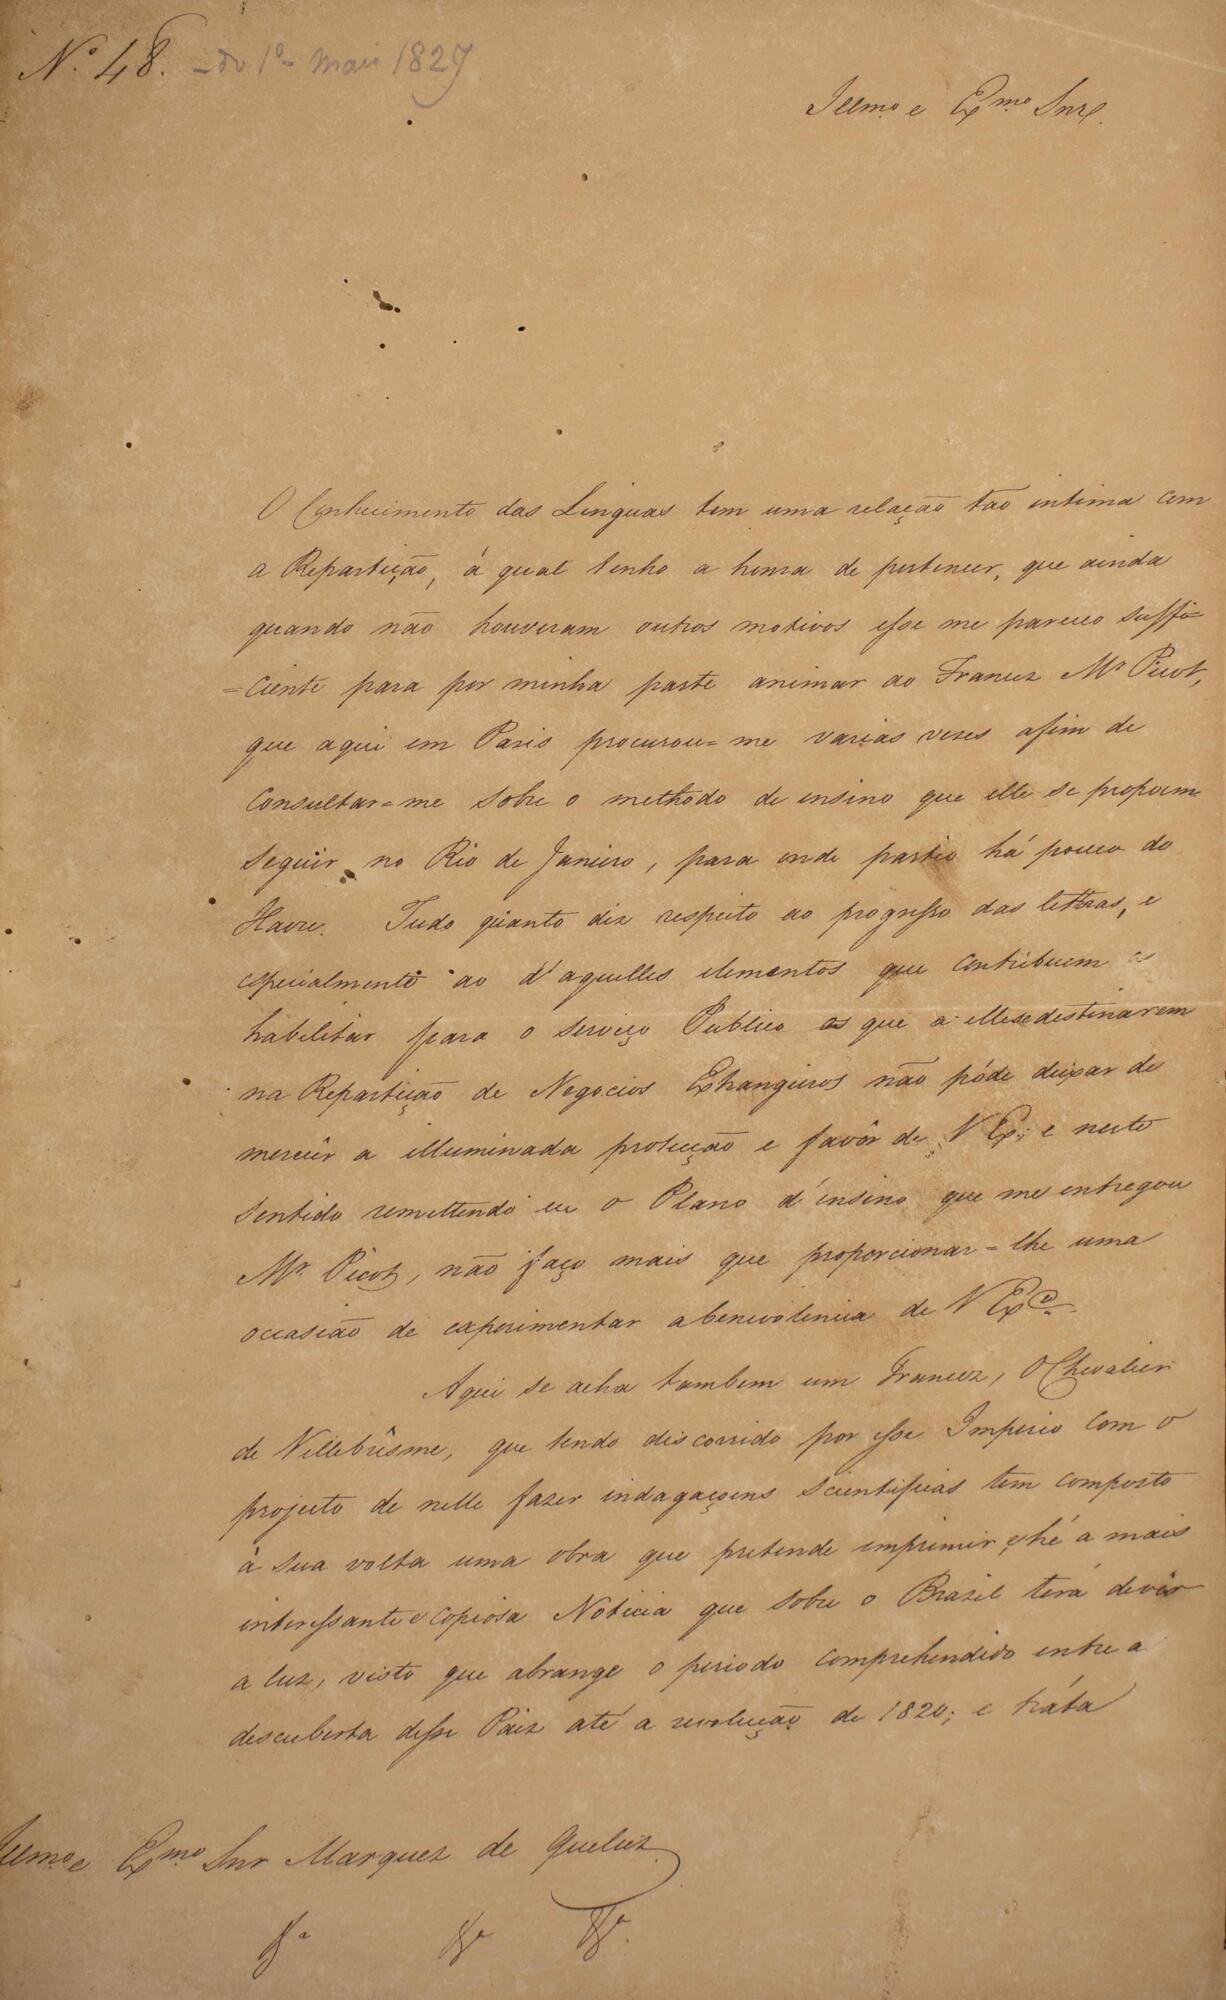 N.º 48. - do 1º - maio 1827
Illmo e Exmo Snr.
O Conhecimento das Linguas tem uma relação tão intima com
a Repartição, á qual tenho a honra de pertencer, que ainda
quando não houveram outros motivos esse me pareceo suffi=
=ciente para por minha parte animar ao Francez Mr Picot,
que aqui em Paris procurou=me varias vezes afim de
Consultar=me sobre o methodo de ensino que elle se propoem
Seguir no Rio de Janeiro, para onde partio há pouco do
Havre. Tudo quanto diz respeito ao progresso das lettras, e
especialmente ao d'aquelles elementos que contribuem a
habilitar para o serviço Publico os que a elle se destinarem
na Repartição de Negocios Estrangeiros não póde deixar de
merecêr a illuminada protecção e favôr de V Ex; e neste
Sentido remettendo eu o Plano d'ensino que me entregou
Mr. Picot, não faço mais que proporcionar=lhe uma
occasião de experimentar a benevolencia de V Exa.
Aqui se acha tambem um Francez, O Chevalier
de Villebrûsme, que tendo discorrido por esse Imperio com o
projecto de nelle fazer indagaçoens scientificas tem composto
á sua volta uma obra que pretende imprimir, e hé a mais
interessante e copiosa Noticia que sobre o Brazil terá de vir
a luz, visto que abrange o periodo comprehendido entre a
descuberta desse Paiz até a revolução de 1820; e tráta
Illmo e Exmo Snr Marquez de Queluz